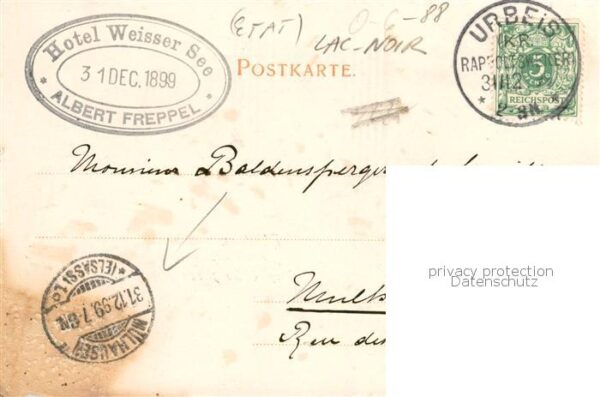 Hotel Weisser See
31 DEC. 1899
* ALBERT FREPPEL *
(ETAT)
LAC-NOIR
0-6-88
POSTKARTE.
URBEIS
KR.
RAPPOLTSWEILER
31/12
5
REICHSPOST
Monsieur Baldensperger
privacy protection
Datenschutz
MÜLHAUSEN
31.12.99.7-8N.
* (ELSASS) 1.
Rue des